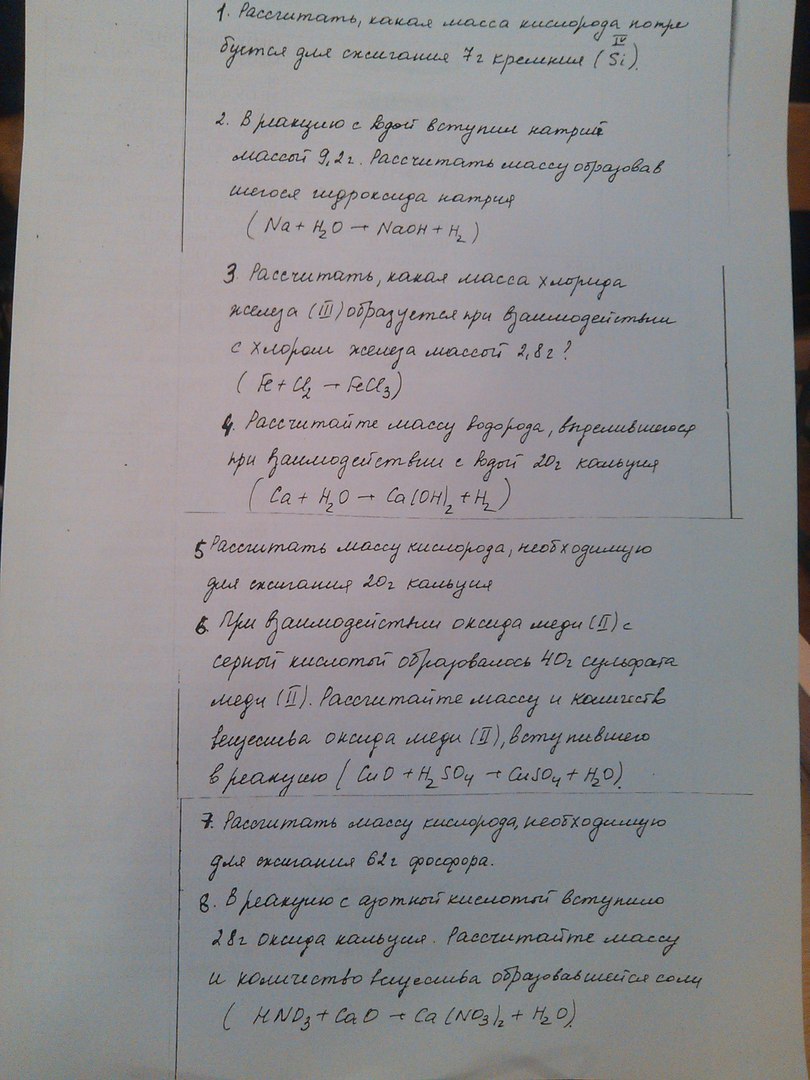 1. Рассчитать, какая масса кислорода потре
буется для сжигания 7г кремния (Si).
IV
2. В реакцию с водой вступил натрий
массой 9,2г. Рассчитать массу образовав
шегося гидроксида натрия
(Na + H₂O → NaOH + H₂)
3 Рассчитать, какая масса хлорида
железа (III) образуется при взаимодействии
с хлором железа массой 2,8г?
(Fe + Cl₂ → FeCl₃)
4. Рассчитайте массу водорода, выделившегося
при взаимодействии с водой 20г кальция
(Ca + H₂O → Ca(OH)₂ + H₂)
5 Рассчитать массу кислорода, необходимую
для сжигания 20г кальция
6. При взаимодействии оксида меди (II) с
серной кислотой образовалось 40г сульфата
меди (II). Рассчитайте массу и количеств
вещества оксида меди (II), вступившего
в реакцию (CuO + H₂SO₄ → CuSO₄ + H₂O).
7. Рассчитать массу кислорода, необходимую
для сжигания 62г фосфора.
8. В реакцию с азотной кислотой вступило
28г оксида кальция. Рассчитайте массу
и количество вещества образовавшейся соли
(HNO₃ + CaO → Ca(NO₃)₂ + H₂O).